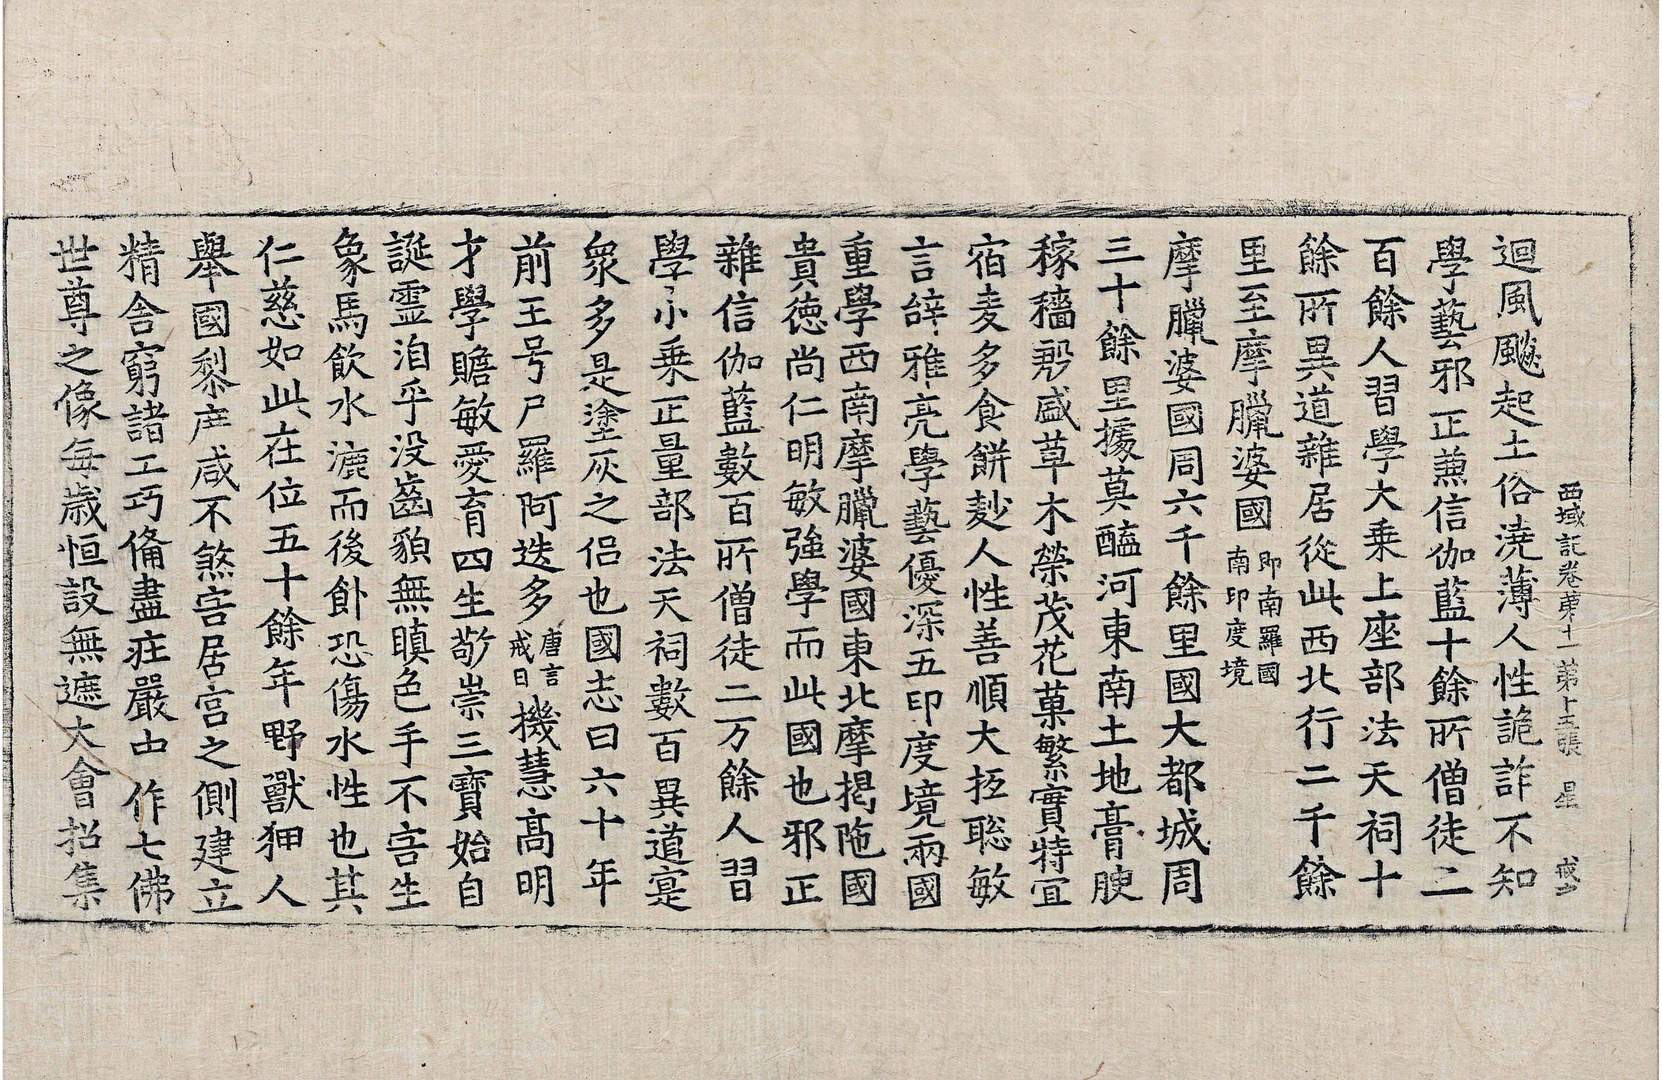 西域記卷第十一 第十五張 星
迴風飈起土俗澆薄人性詭詐不知
學藝邪正兼信伽藍十餘所僧徒二
百餘人習學大乘上座部法天祠十
餘所異道雜居從此西北行二千餘
里至摩臘婆國即南羅國南印度境
摩臘婆國周六千餘里國大都城周
三十餘里據莫醯河東南土地膏腴
稼穡殷盛草木榮茂花菓繁實特宜
宿麦多食餅麨人性善順大抵聡敏
言辝雅亮學藝優深五印度境兩國
重學西南摩臘婆國東北摩揭陁國
貴德尚仁明敏強學而此國也邪正
雜信伽藍數百所僧徒二万餘人習
學小乘正量部法天祠數百異道寔
衆多是塗灰之侶也國志曰六十年
前王号尸羅阿迭多唐言戒日機慧高明
才學贍敏愛育四生敬崇三寶始自
誕霊洎乎没齒貌無瞋色手不害生
象馬飲水漉而後飤恐傷水性也其
仁慈如此在位五十餘年野獸狎人
舉國黎庶咸不煞害居宮之側建立
精舍窮諸工巧俻盡莊嚴中作七佛
世尊之像每歳恒設無遮大會招集